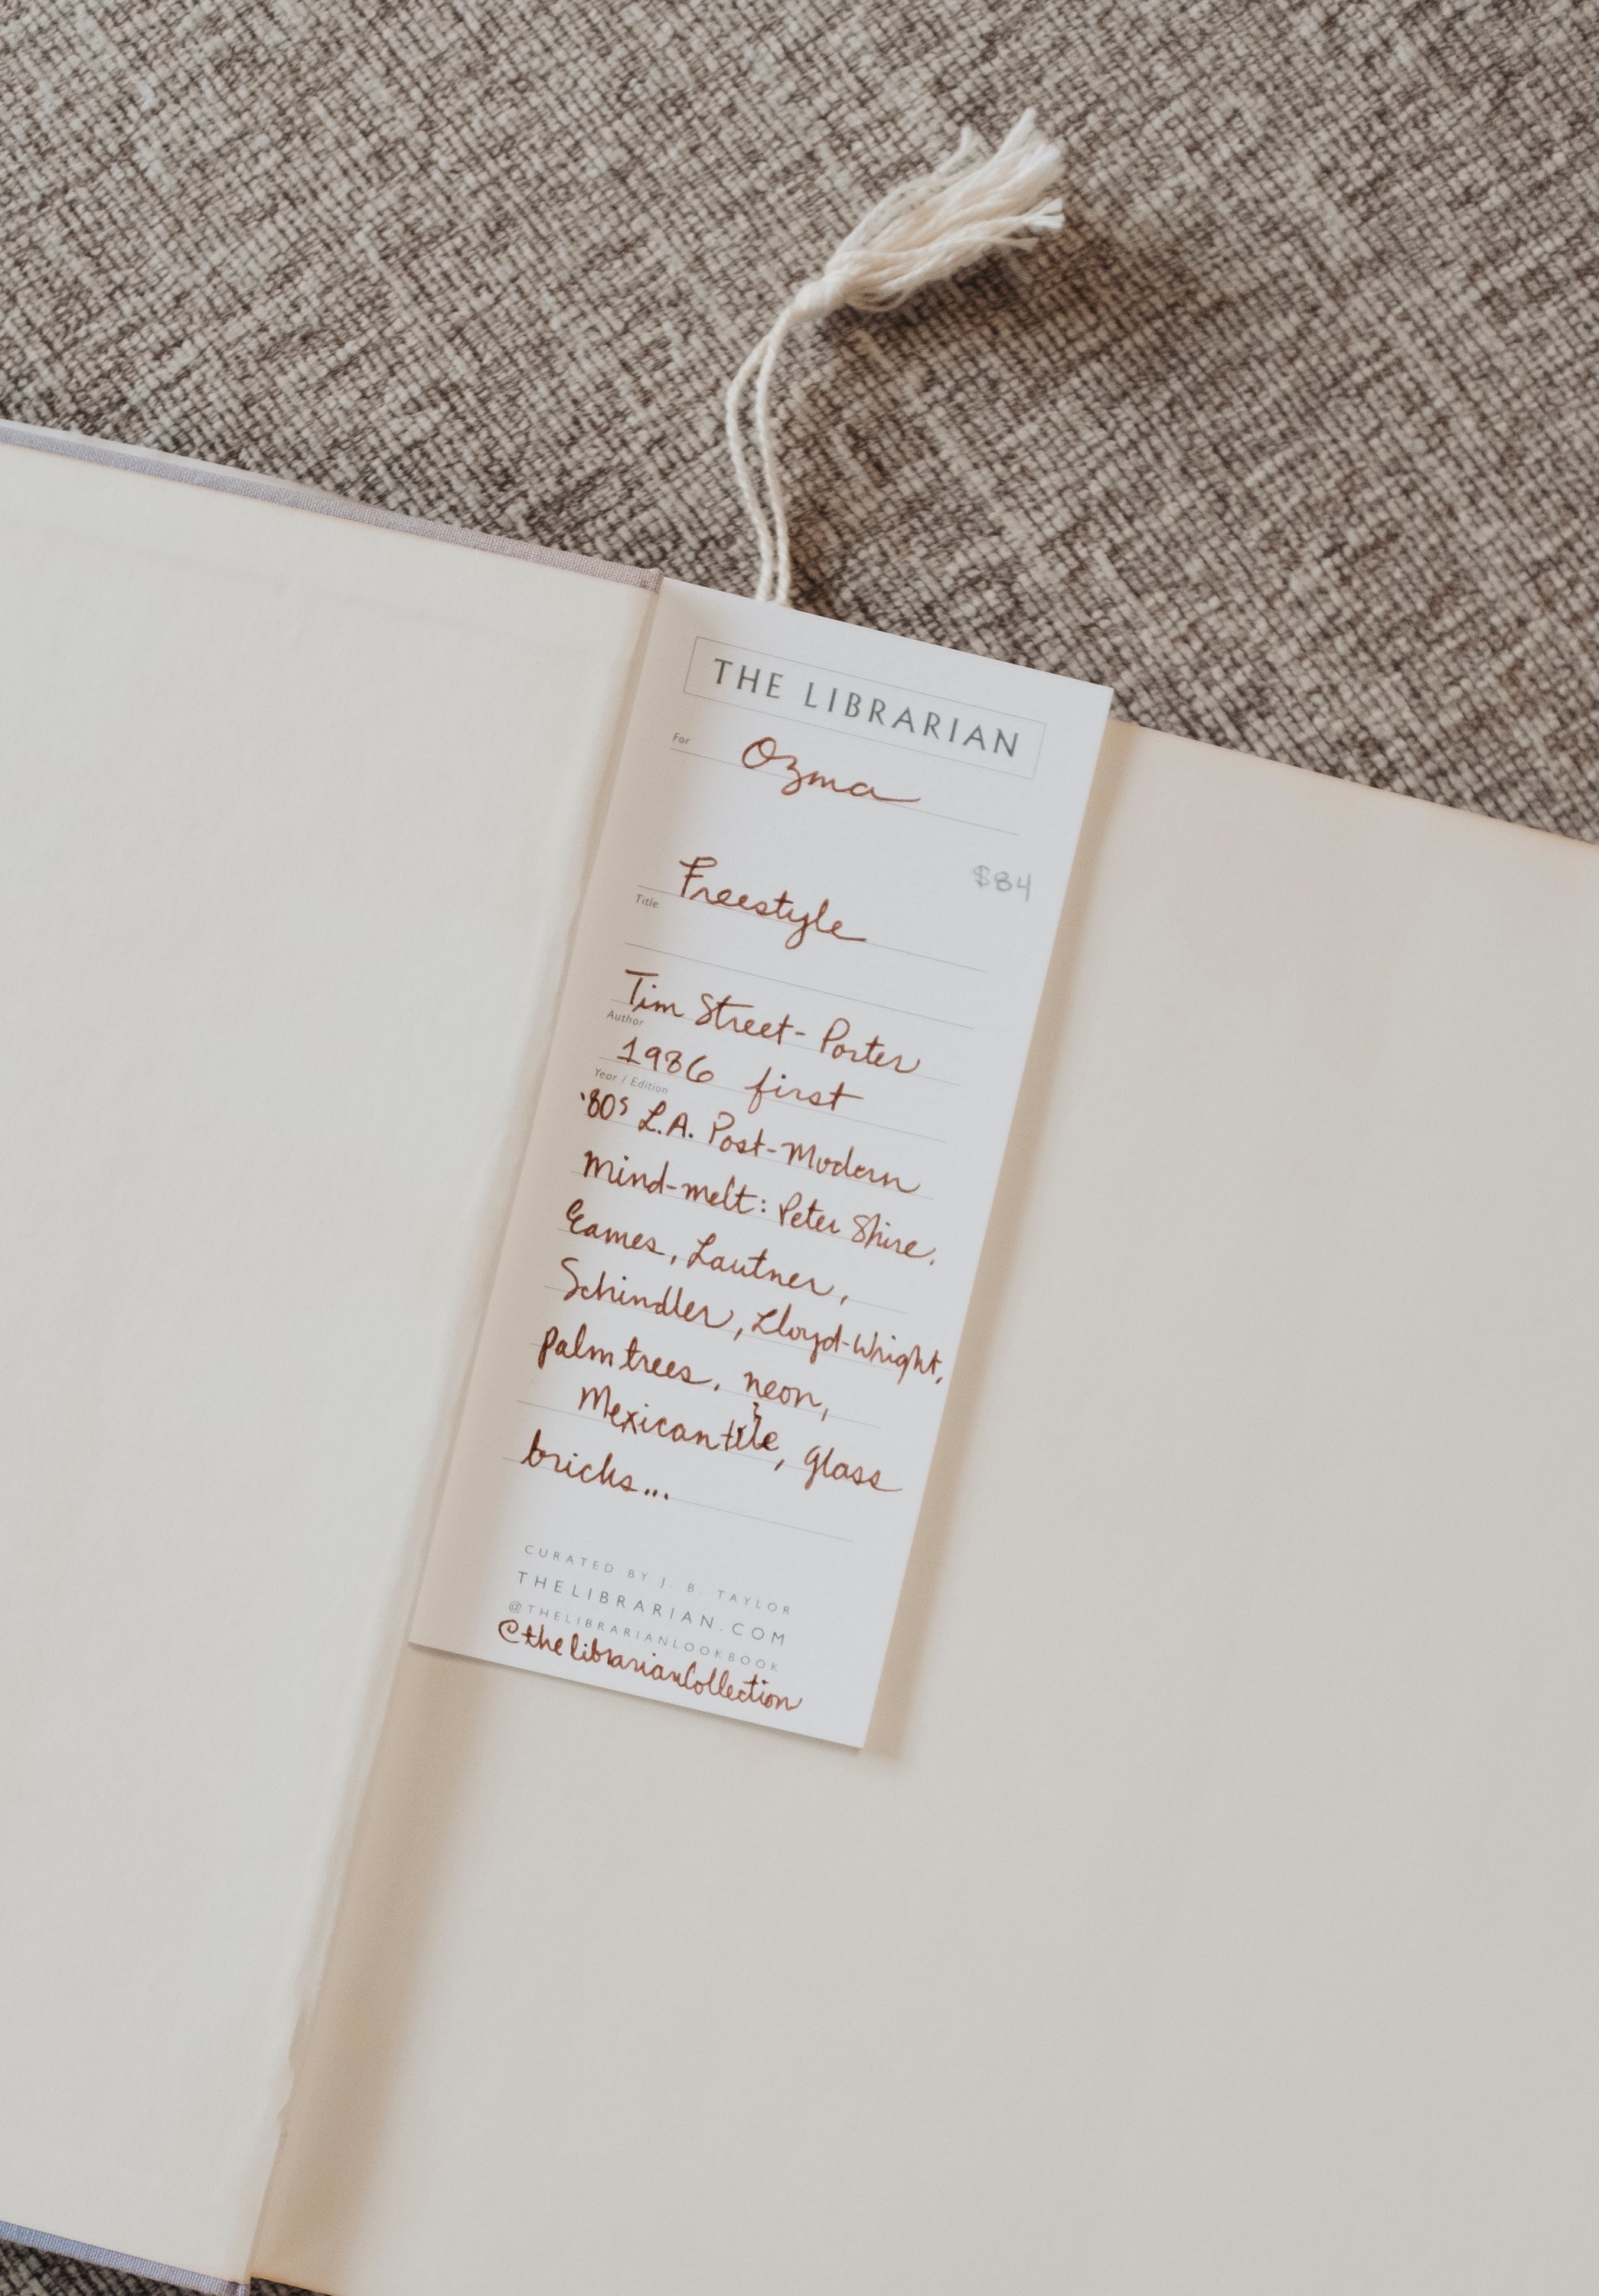 THE LIBRARIAN
For Ozma
$84
Freestyle
Title
Tim Street-Porter
Author
1986 first
Year / Edition
'80s L.A. Post-Modern
Mind-melt: Peter Shire,
Eames, Lautner,
Schindler, Lloyd-Wright,
palm trees, neon,
Mexican tile, glass
bricks...
CURATED BY J. B. TAYLOR
THELIBRARIAN.COM
@THELIBRARIANLOOKBOOK
@thelibrarianCollection